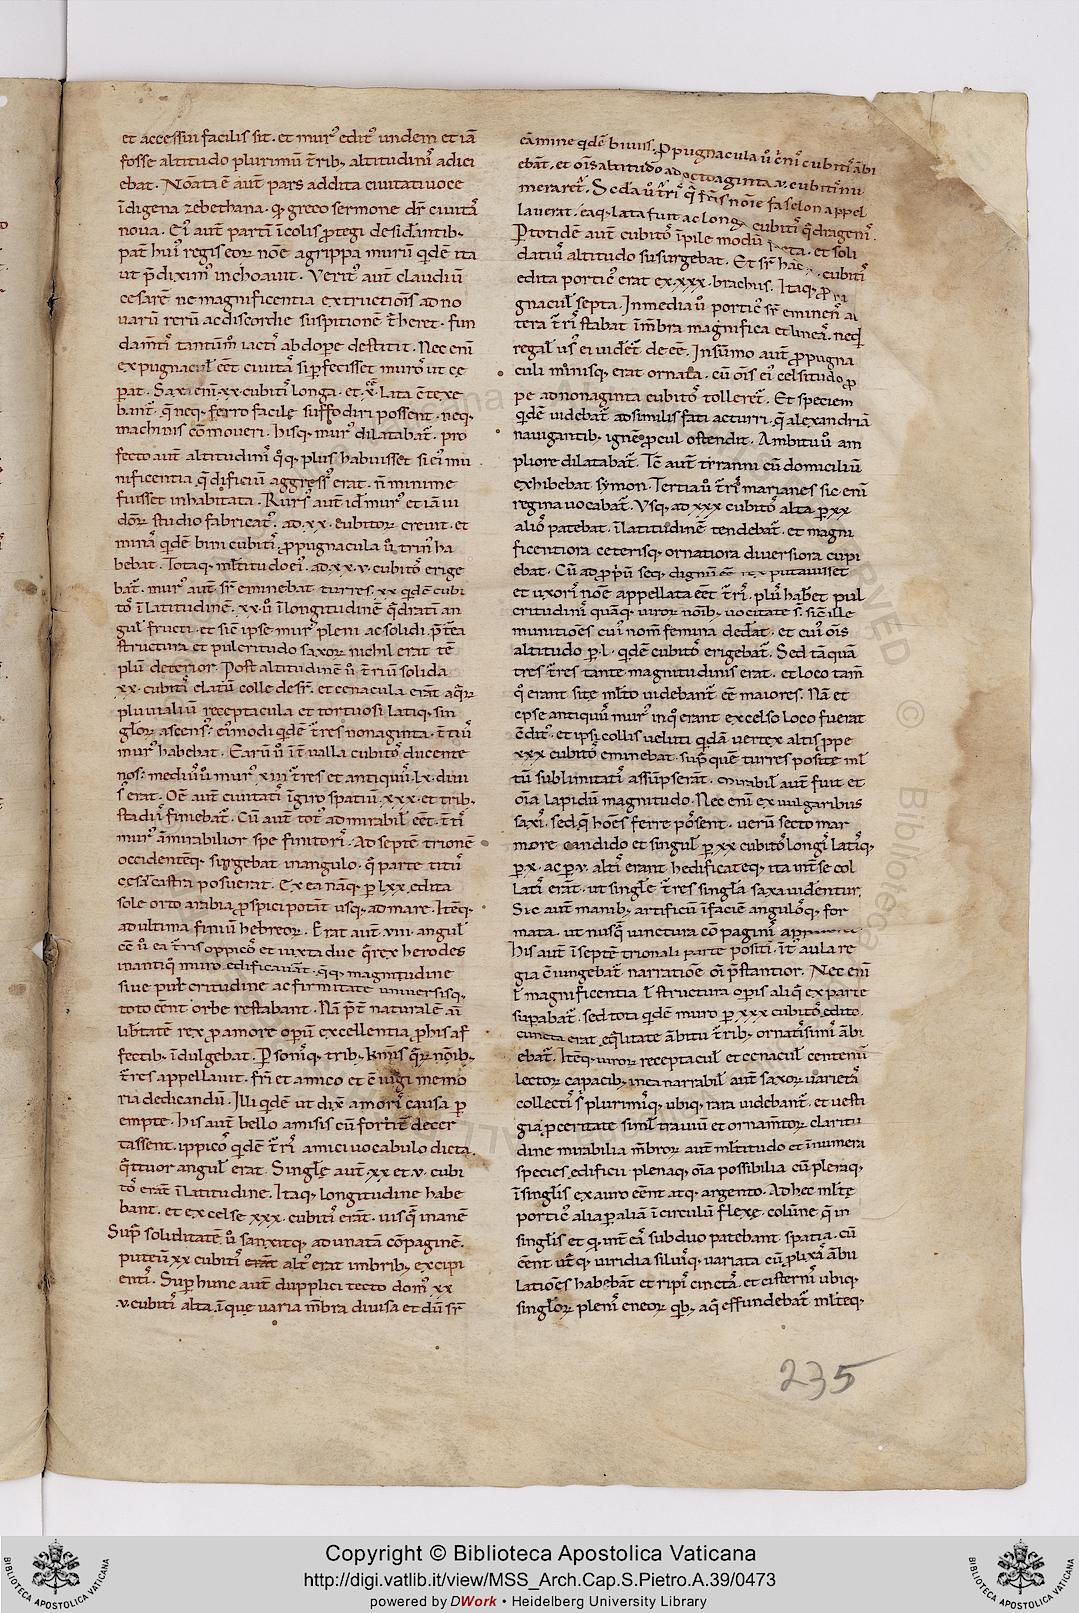 et accessui facilis sit. et mur᷒ edit᷒ undem et iā
fosse altitudo plurimū t̄rib; altitudinı̄ adici
ebat. Noāta ē aut̄ pars addita ciuitati uoce
īdigena zebethana. qđ greco sermone dr̄ ciuitā
noua. Ei᷒ aut̄ partı̄ īcolis ꝓtegi desid̄antib;
pat̄ hui᷒ regis eoꝝ noīe agrippa murū qđē ita
ut p̄dixim᷒ inchoauit. Verit᷒ aut̄ claudiū
cesarē ne magnificentia extructiōis ad no
uarū rerū ac discordie suspitionē t̄heret. fun
dam̄tı̄ tantūm̄ iactı̄ ab dope destitit. Nec enī
expugnacul̄ eēt ciuitā si perfecisset murō ut ce
pat. Saxa enı̄ .xx. cubitı̄ longa. et .x. lata ētexe
bant̄. q̄ neq; ferro facile suffodiri possent. neq;
machinis cōmoueri. hisq; mur᷒ dilatabat̄. pro
fecto aut̄ altitudinı̄ q̄q; plus habuisset si ei᷒ mu
nificentia q̄ dificiū aggress᷒ erat. n̄ minime
fuisset inhabitata. Rurs᷒ aut̄ id̄ mur᷒ et iā iu
doꝝ studio fabricat᷒. ad .xx. cubitoꝝ creuit. et
minā qđē bini cubitı̄. ꝓpugnacula ū trin᷒ ha
bebat. Totaq; ml̄titudo ei᷒. ad .xx.v. cubitō erige
bat̄. mur᷒ aut̄ sr̄ eminebat turres. xx qđē cubi
tō ī latitudinē. xx. ū ī longitudinē q̄drati an
gul̄ fructi. et sic̄ ipse mur᷒ pleni ac solidi. p̄t̄ea
structura et pulcritudo saxoꝝ nichil erat tē
plū deterior. Post altitudinē ū t̄riū solida
xx. cubitı̄ elatū colle desr̄. et cenacula erāt aq̄ꝝ
pluuialiū receptacula et tortuosi. latiq; sin
gl̄oꝝ ascens᷒. ei᷒modi qđē t̄res nonaginta. t̄tiū
mur᷒ habebat. Earū ū īt̄ualla cubitō ducente
nos: medi᷒ ū mur᷒ xiiii t̄res et antiqu᷒ .lx. diui
s᷒ erat. Oē aut̄ ciuitatı̄ īgiro spatiū .xxx. et trib;
stadiı̄ finiebat̄. Cū aut̄ tot᷒ admirabil̄ eēt. t̄ti᷒
mur᷒ āmirabilior spe finitorı̄. Ad septē trionē
occidentēq; surgebat inangulo. q̄ parte titū
cesa castra posuerat. Ex ea nāq; p lxx. edita
sole orto arabia ꝓspici potāt usq; ad mare. Itēq;
ad ultima finiū hebreoꝝ. Erat aut̄ .viii. angul̄
cē ū ea t̄ris oppicō et iuxta due q̄ rex herodes
inantiq̄ muro edificauāt. q̄q; magnitudine
siue pul̄critudine ac firmitate uniuersisq;
toto eēnt orbe restabant. Nā p̄t̄ naturalē aū
lib̄tatē rex ꝓ amore opiū excellentia ꝓ his af
fectib; īdulgebat. P sonı̄q; trib; kmis q̄ꝝ nōīb;
t̄res appellauit. frı̄ et amico et cōiugi memo
ria dedicandū. Illi qđē ut dix̄ amorı̄ causa p
empte. his aut̄ bello amisis cū fortit̄ decer
tassent. ippicō qđē t̄rı̄ amici uocabulo dicta.
q̄ttuor angul̄ erat. Single aut̄ xx et v. cubi
tō erāt ī latitudine. Itaq; longitudine habe
bant. et excelse xxx. cubitı̄ erāt. uisq̄ inanē
Sup̄ soliditatē ū sanxitq; ad unatā cōpaginē.
puteū xx cubitı̄ erāt alt᷒ erat imbrib; excipi
entı̄. Sup̄ hunc aut̄ dupplici tecto dom᷒ xx
.v. cubitı̄ alta. īque uaria mēbra diuisa et dū sr̄
cāmine qđē biuis. Propugnacula ū ēni᷒ cubitı̄ ābi
ebāt. et oīs altitudo ad octoaginta .v. cubitı̄ nu
meraret̄. Secda ū t̄rı̄ q̄ fr̄is noīe faselon appel
lauerat. eaq; lata fuit ac longa cubitı̄ q̄dragenı̄.
P totidē aut̄ cubitō īpile modū et soli
datiū altitudo susurgebat. Et sr̄ hāc cubitı̄
edita portic᷒ erat ex .xxx. brachiis. Itaq; ꝓ
gnacul̄ septa. In media ū portic᷒ sr̄ eminen̄ al
tera t̄rı̄ stabat īmēbra magnifica et lineā. neq̄
regal̄ us᷒ ei uidēt̄ deeē. In sūmo aut̄ ꝓpugna
culi mīnisq; erat ornata. cū oīs ei᷒ celsitudo ꝓ
pe ad nonaginta cubitō tolleret̄. Et speciem
qđē uidebat̄ adsimilis fati acturri. q̄ alexandriā
nauigantib; ignē ꝓcul ostendit. Ambitu ū am
pliore dilatabat̄. Tē aut̄ tiranni cū domiciliū
exhibebat symon. Tertia ū t̄rı̄ marianes sic enī
regina uocabat̄. Vsq; ad xxx cubitō alta p xx
aliō patebat. ī latitudinē tendebat̄. et magni
ficentiora ceterisq; ornatiora diuersiora cupi
ebat. Cū ad ꝓpū seq; dignū eē rex putauisset
et uxorı̄ noīe appellata eēt t̄rı̄. pl᷒ habēt pul
critudinı̄ quāq; uiroꝝ noīb; uocitate s̄. sic̄ ille
munitiōes cui᷒ nom̄ femina dedat. et cui᷒ oīs
altitudo p .l. qđē cubitō erigebat̄. Sed tā quā
tres t̄res tante magnitudinis erat. et loco tam̄
q̄ erant site ml̄to uidebant̄ eē maiores. Nā et
epse antiqu᷒ mur᷒ inq̄ erant excelso loco fuerat
ēdit᷒. et ipsi᷒ collis ueluti qdā uertex altis ppe
xxx cubitō eminebat. sup̄ quē turres posite ml̄
tū sublimitatı̄ assūpserāt. mirabil̄ aut̄ fuit et
oīa lapidū magnitudo. Nec enı̄ ex uulgaribus
saxı̄. sed q̄ hoēs ferre pōsent. uerū secto mar
more candido et singul̄ p xx cubitō longı̄. latı̄q;
p .x. ac p .v. altı̄ erant hedificateq; ita unt̄ se col
latı̄ erāt. ut single t̄res singla saxa uidentur.
Sic aut̄ manib; artificū ī facie angulōq; for
mata. ut nusq̄ iunctura cōpaginı̄
his aut̄ ī septē trionali parte positi. īt̄ aula re
gia ē iungebat̄ narratiōe oī p̄stantior. Nec enı̄
l̄ magnificentia l̄ structura opis aliq̄ ex parte
supabat̄. sed tota qđē muro p xxx cubitō edito.
cuncta erat eq̄litate ābitu t̄rib; ornatisimı̄ ābi
ebat̄. Itēq; uiroꝝ receptacul̄ et cenacul̄ centenū
lectoꝝ capacib; inenarrabil̄ aut̄ saxoꝝ uarietā
collectı̄ s̄ plurimı̄q; ubiq; rara uidebant̄. et uesti
gia ꝓceritate simul̄ trauiū et ornam̄toꝝ claritu
dine mirabilia mēbroꝝ aut̄ ml̄titudo et īnumera
species edificii plenaq; oīa possibilia cū pleraq;
ī singlis ex auro eēnt atq; argento. Ad hec ml̄te
portic᷒ alia p aliā ī circulū flexe. colūne. q̄ in
singlis et q̄ unt̄ eā sub duo patebant spatia. cū
eēnt ut̄q; uiridia siluı̄q; uariata cū ꝓlixā ābu
latiōes habebant et ripı̄ cinctā. et cisternı̄ ubiq;
singloꝝ plenı̄ eneoꝝ qb; aq̄ effundebat̄ ml̄teq;
235
Copyright © Biblioteca Apostolica Vaticana
http://digi.vatlib.it/view/MSS_Arch.Cap.S.Pietro.A.39/0473
powered by DWork • Heidelberg University Library